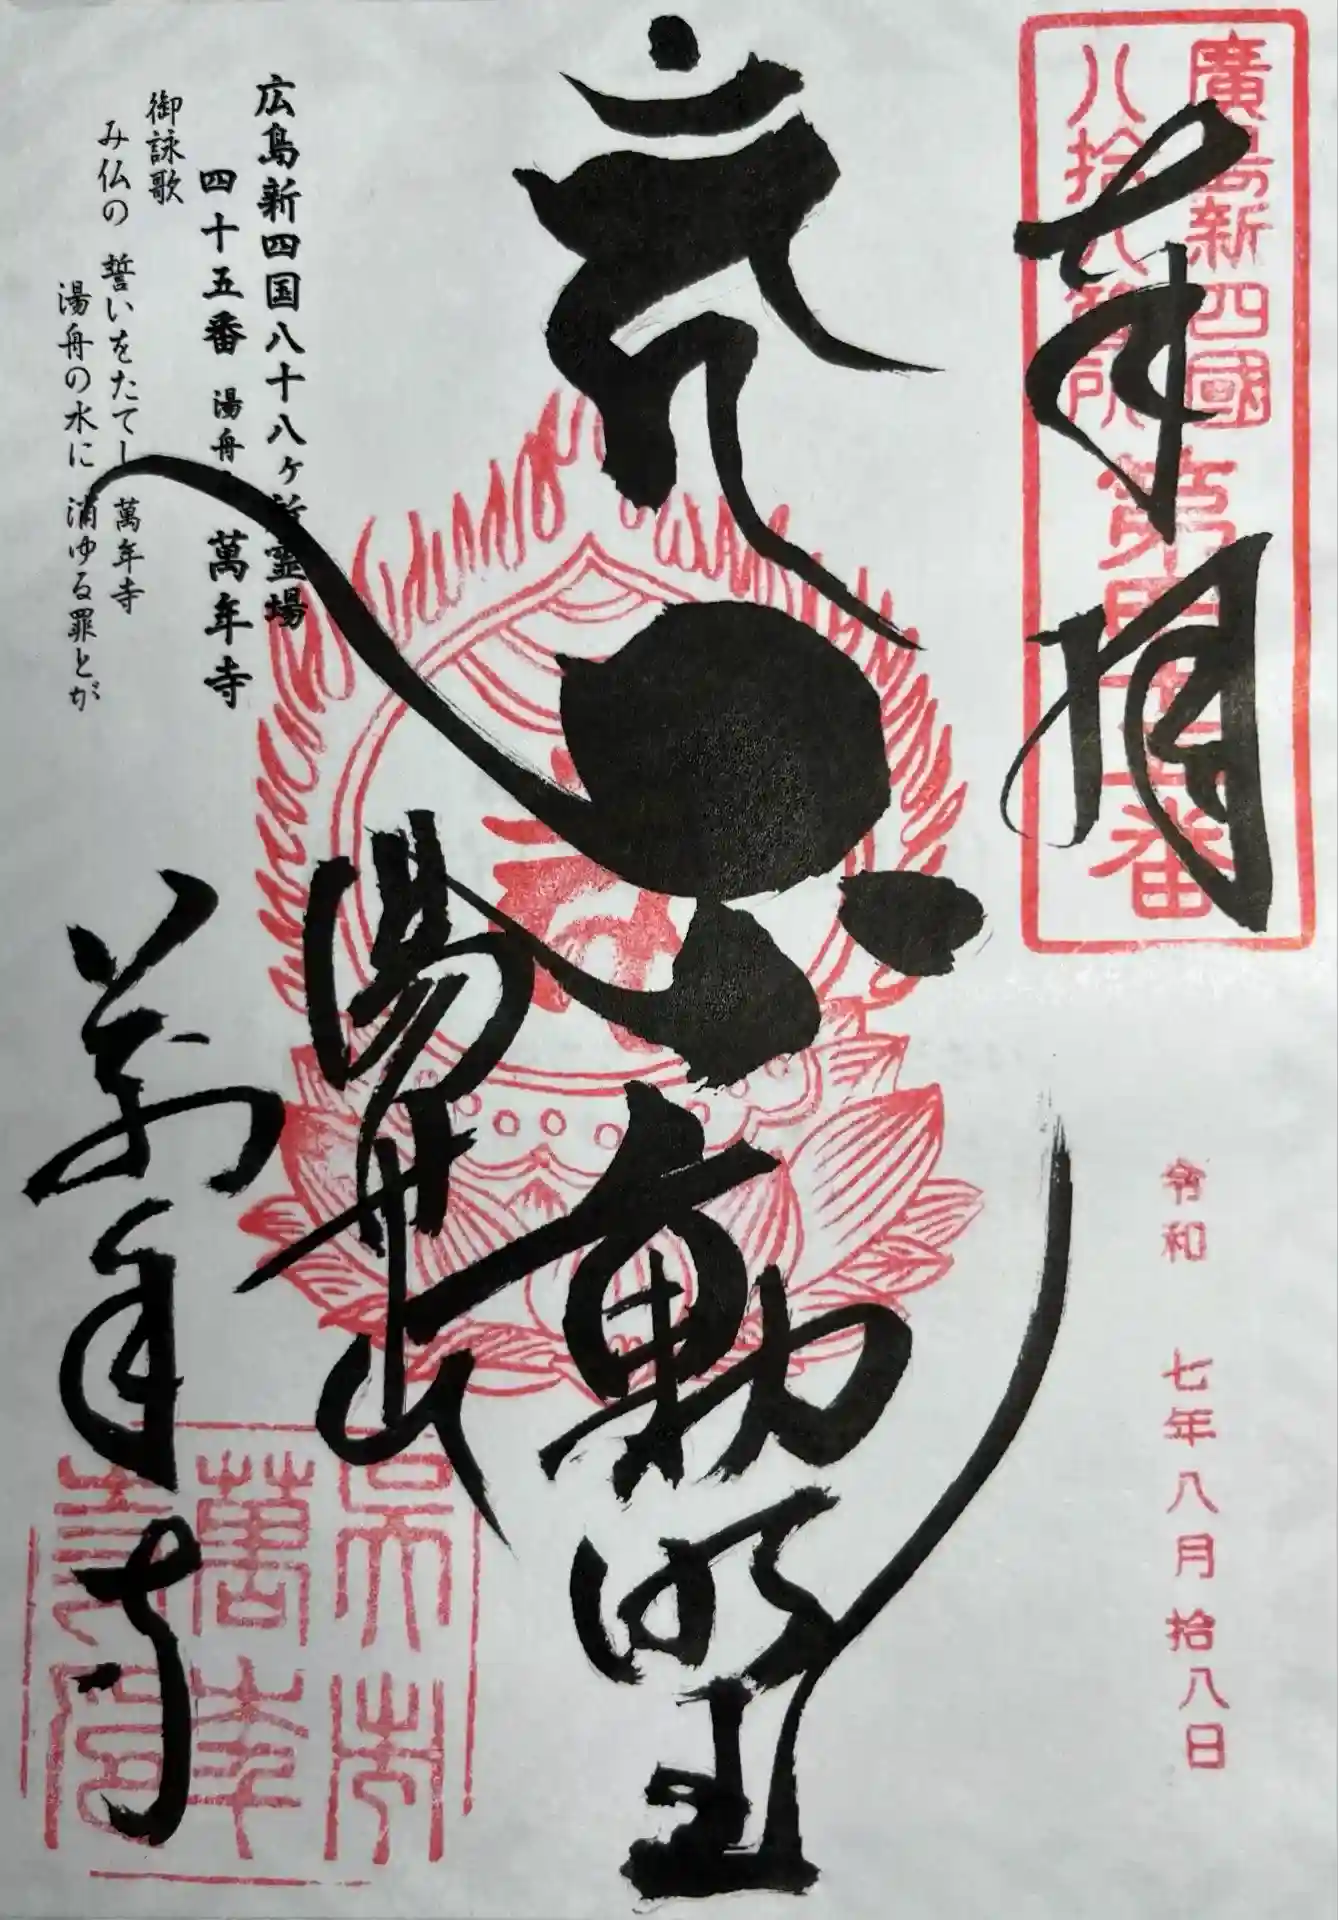 奉拝
廣島新四國
八拾八箇所
第四十五番
令和 七年八月拾八日
不動明王
湯舟山
萬年寺
広島新四国八十八ヶ所霊場
四十五番 湯舟山 萬年寺
御詠歌
み仏の 誓いをたてし 萬年寺
湯舟の水に 消ゆる罪とが
呉市
萬年
寺印